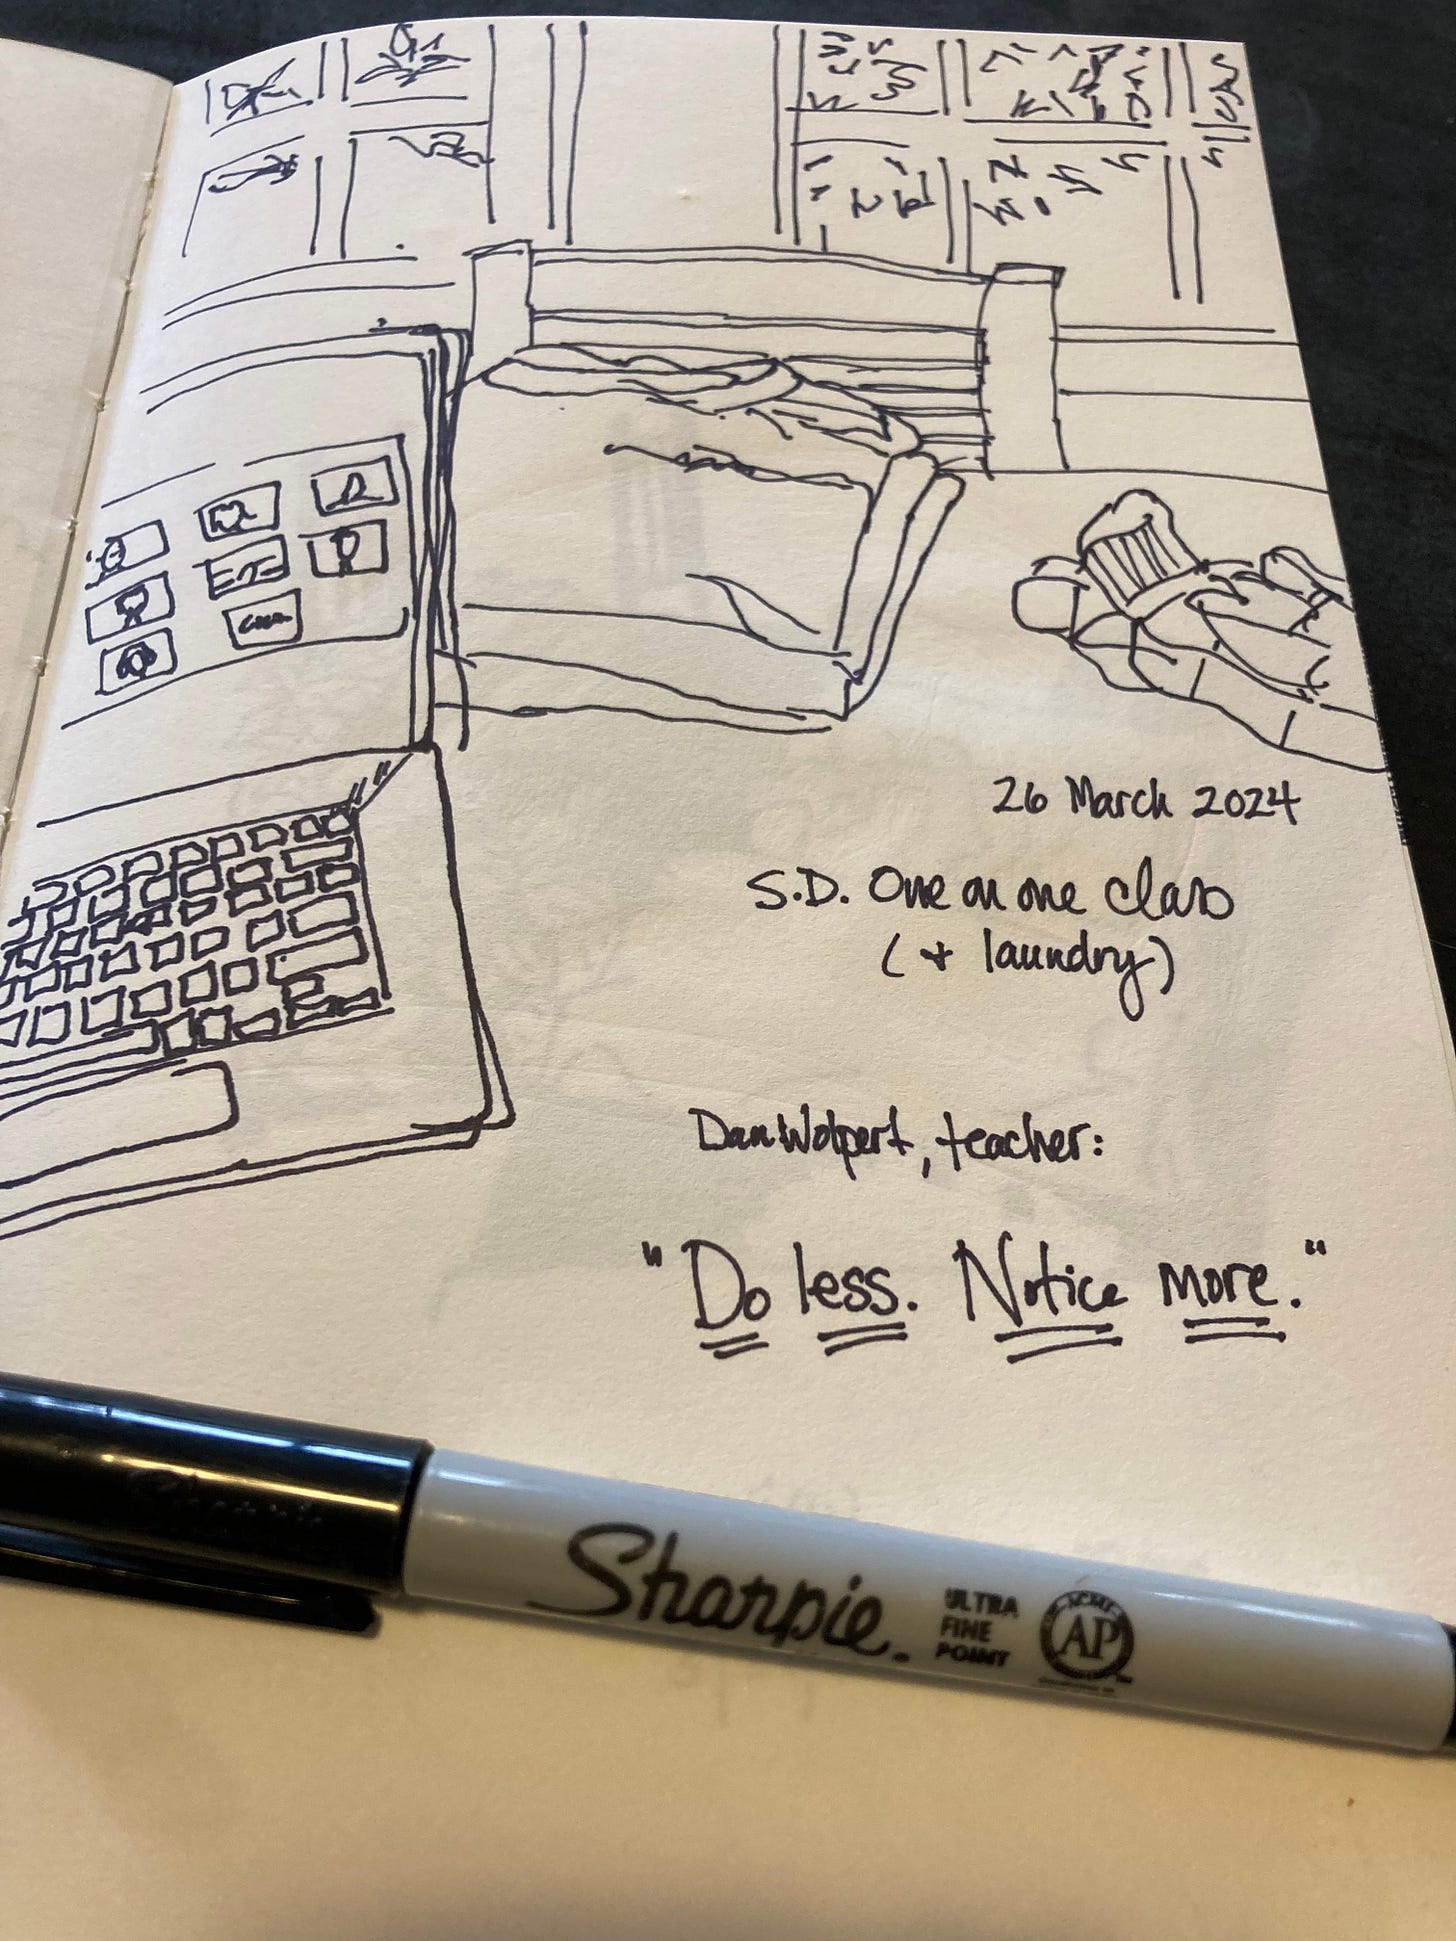 26 March 2024
S.D. One on one class
(+ laundry)
Dan Wolpert, teacher:
"Do less. Notice more."
Sharpie.
ULTRA
FINE
POINT
ACMI
AP